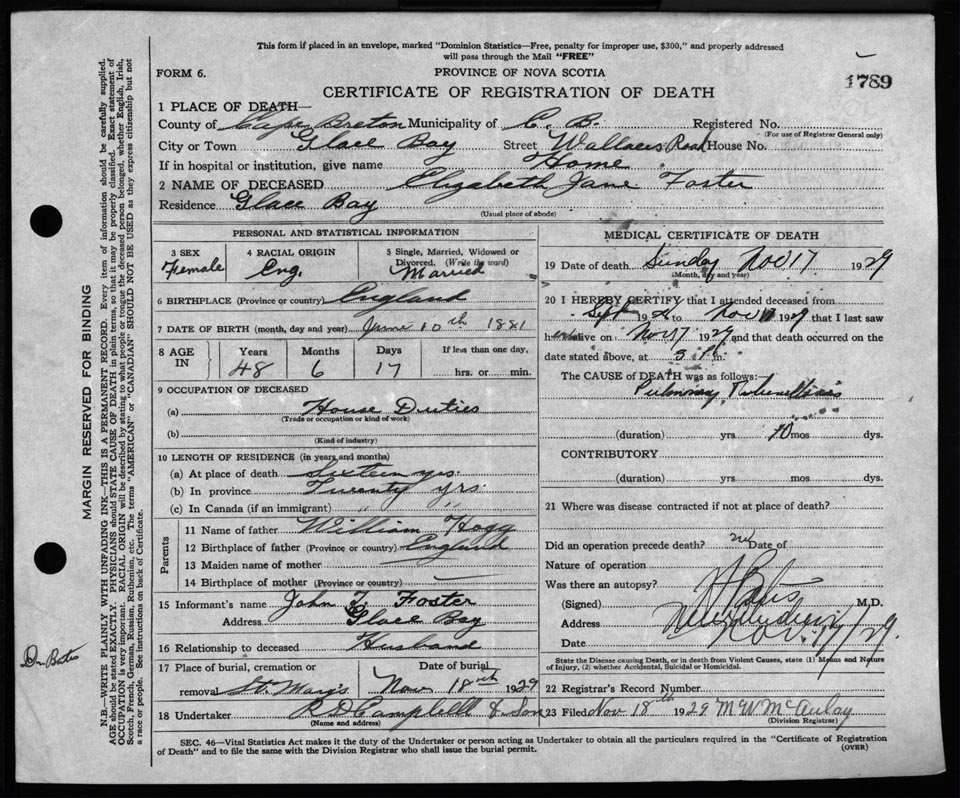 This form if placed in an envelope, marked "Dominion Statistics—Free, penalty for improper use, $300," and properly addressed
will pass through the Mail "FREE"
FORM 6.
PROVINCE OF NOVA SCOTIA
1789
CERTIFICATE OF REGISTRATION OF DEATH
1 PLACE OF DEATH—
County of Cape Breton Municipality of C. B. Registered No.
(For use of Registrar General only)
City or Town Glace Bay Street Wallaces Road House No.
If in hospital or institution, give name Home
2 NAME OF DECEASED Elizabeth Jane Foster
Residence Glace Bay
(Usual place of abode)
PERSONAL AND STATISTICAL INFORMATION
3 SEX
Female
4 RACIAL ORIGIN
Eng.
5 Single, Married, Widowed or
Divorced. (Write the word)
Married
6 BIRTHPLACE (Province or country) England
7 DATE OF BIRTH (month, day and year) June 10th 1881
8 AGE IN
Years Months Days If less than one day,
48 6 17 hrs. or min.
9 OCCUPATION OF DECEASED
(a) House Duties
(Trade or occupation or kind of work)
(b)
(Kind of industry)
10 LENGTH OF RESIDENCE (in years and months)
(a) At place of death Sixteen yrs.
(b) In province Twenty yrs
(c) In Canada (if an immigrant) " "
Parents
11 Name of father William Hogg
12 Birthplace of father (Province or country) England
13 Maiden name of mother
14 Birthplace of mother (Province or country) —
15 Informant's name John T. Foster
Address Glace Bay
16 Relationship to deceased Husband
17 Place of burial, cremation or Date of burial
removal St. Mary's Nov 18th 1929
18 Undertaker R D Campbell & Son
(Name and address)
MEDICAL CERTIFICATE OF DEATH
19 Date of death Sunday Nov 17 1929
(Month, day and year)
20 I HEREBY CERTIFY that I attended deceased from
Sept 19 to Nov 17 1929 that I last saw
h alive on Nov 17 1929 and that death occurred on the
date stated above, at 3 P. m.
The CAUSE of DEATH was as follows:
Pulmonary Tuberculosis
(duration) yrs 10 mos dys.
CONTRIBUTORY
(duration) yrs mos dys.
21 Where was disease contracted if not at place of death?
Did an operation precede death? no Date of
Nature of operation
Was there an autopsy?
(Signed) Bates M.D.
Address
Date Nov. 17/29.
State the Disease causing Death, or in death from Violent Causes, state (1) Means and Nature
of Injury, (2) whether Accidental, Suicidal or Homicidal.
22 Registrar's Record Number
23 Filed Nov 18th 1929 M W McAulay
(Division Registrar)
SEC. 46—Vital Statistics Act makes it the duty of the Undertaker or person acting as Undertaker to obtain all the particulars required in the "Certificate of Registration
of Death" and to file the same with the Division Registrar who shall issue the burial permit.
(OVER)
MARGIN RESERVED FOR BINDING
N.B.—WRITE PLAINLY WITH UNFADING INK—THIS IS A PERMANENT RECORD. Every item of information should be carefully supplied.
AGE should be stated EXACTLY. PHYSICIANS should STATE CAUSE OF DEATH in plain terms, so that it may be properly classified. Exact statement of
OCCUPATION is very important. RACIAL ORIGIN will be described by stating to what people or tongue the deceased person belonged, whether English, Irish,
Scotch, French, German, Russian, Ruthenian, etc. The terms "AMERICAN" or "CANADIAN" SHOULD NOT BE USED as they express citizenship but not
a race or people. See instructions on back of Certificate.
Dr Bates